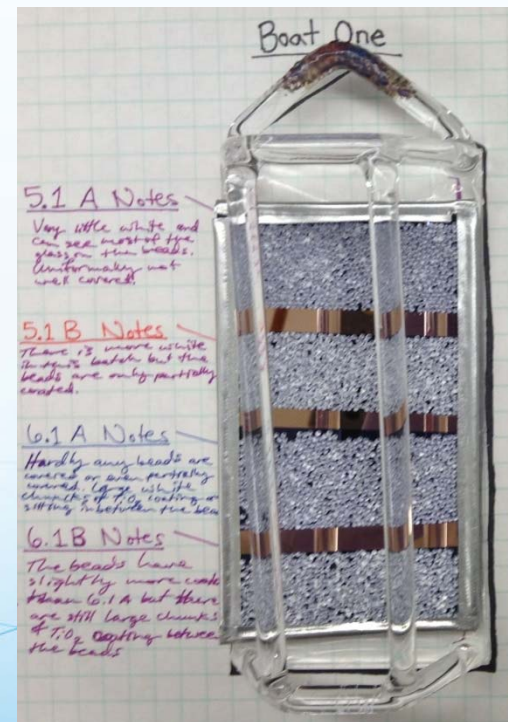 Boat One
5.1 A Notes
Very little white and
can see most of the
glass on the beads.
not
well covered.
5.1 B Notes
There is more white
in this batch but the
beads are only partially
coated.
6.1 A Notes
Hardly any beads are
covered or even partially
covered. Large white
chuncks of TiO2 coating or
sitting inbetween the bea
6.1B Notes
The beads have
slightly more coati
than 6.1 A but there
are still large chunks
of TiO2 coating between
the beads